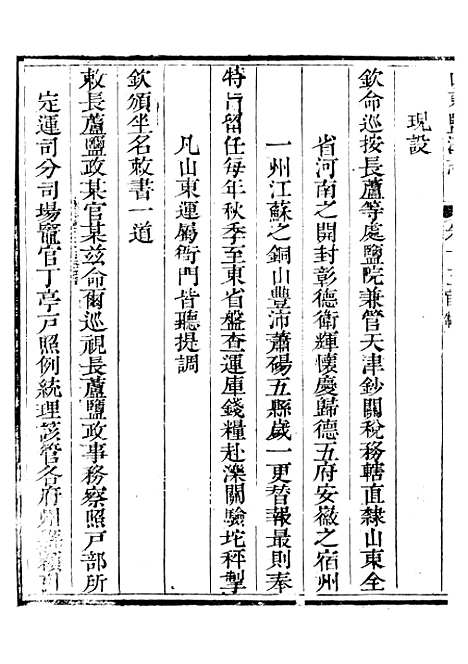 山東鹽法志 卷十三官制
現設
欽命巡按長蘆等處鹽院兼管天津鈔關稅務轄直隸山東全
省河南之開封彰德衛輝懷慶歸德五府安徽之宿州
一州江蘇之銅山豐沛蕭碭五縣歲一更替報最則奉
特旨留任每年秋季至東省盤查運庫錢糧赴濼關驗坨秤掣
凡山東運屬衙門皆聽提調
欽頒坐名敕書一道
敕長蘆鹽政某官某茲命爾巡視長蘆鹽政事務察照戶部所
定運司分司場竈官丁亭戶照例統理該管各府州縣額引